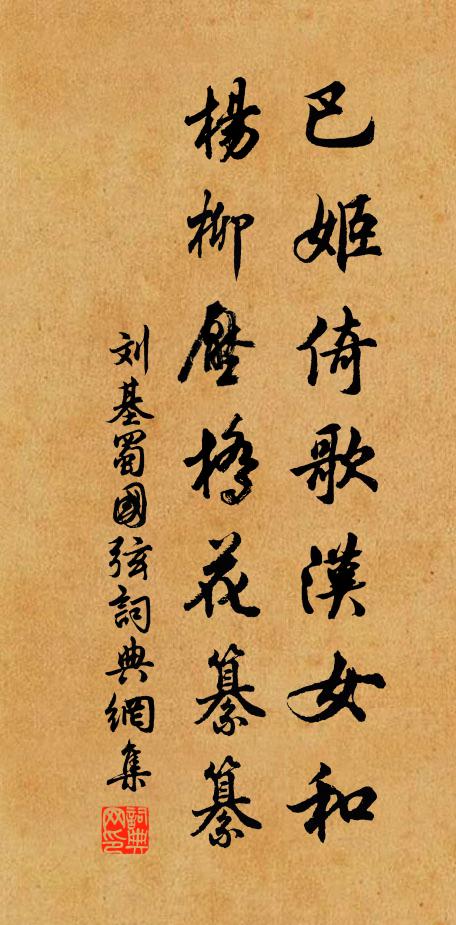 巴姬倚歌漢女和
楊柳壓橋花纂纂
刘基蜀國弦詞典網集
詞典网印